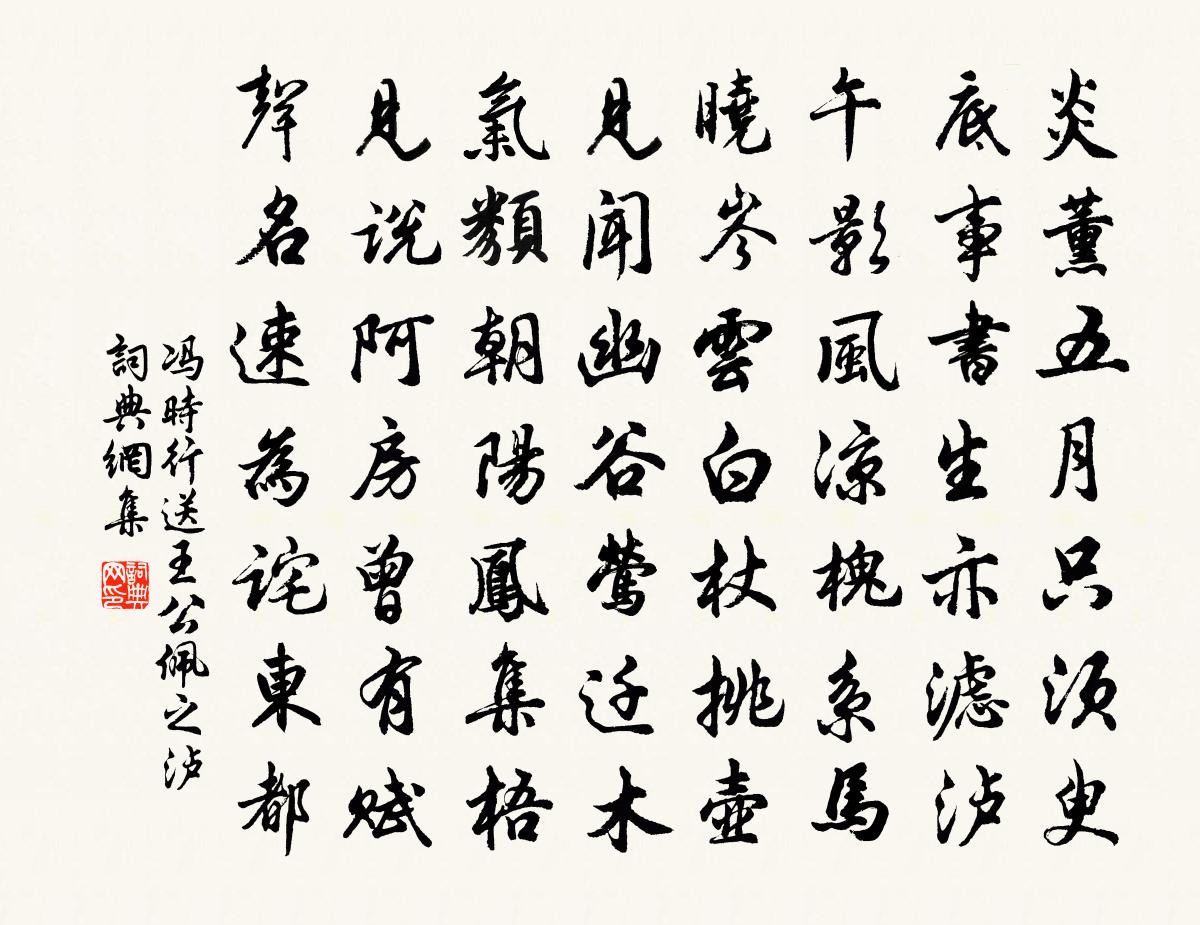 炎薰五月只須臾
底事書生亦濾泸
午影風涼槐系馬
曉岑雲白杖挑壺
見聞幽谷鶯迁木
氣類朝陽鳳集梧
見説阿房曾有赋
聲名速為詫東都
冯時行送王公佩之泸
詞典網集
詞典网印